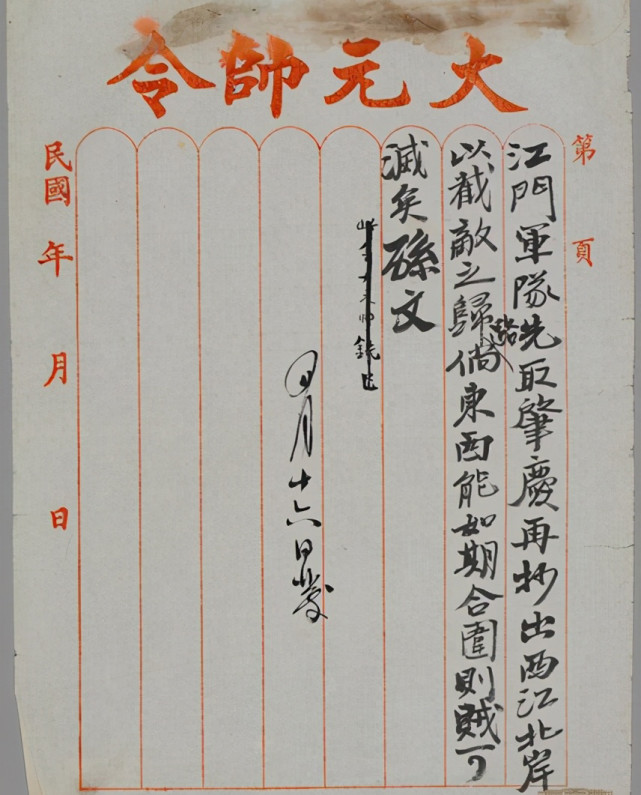 大元帥令
第 頁
江門軍隊先取肇慶再抄出西江北岸
以截敵之歸路倘東西能如期合圍則賊可
滅矣孫文
四月十六日發
民國 年 月 日